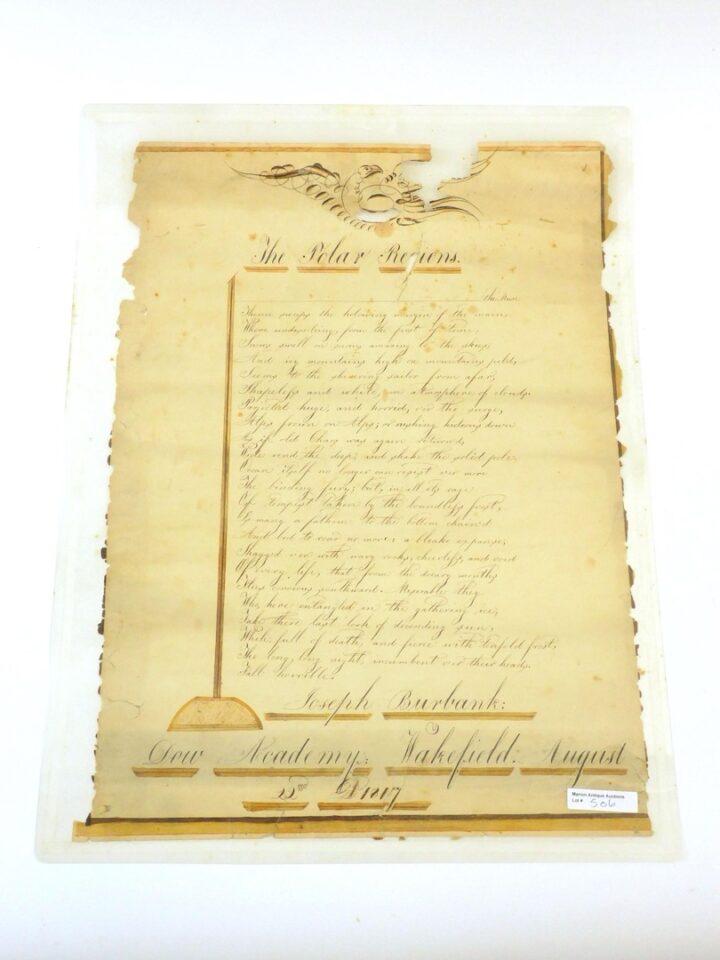 The Polar Regions.
the Muse
Thence sweeps the howling margin of the main,
Where undissolving, from the first of time,
Snows swell on snows amazing to the skies,
And icy mountains high on mountains pild,
Seems to the shivering sailor from afar,
Shapeless and white, an atmosphere of clouds.
Projected huge, and horrid, oer the surge,
Alps frown on Alps; or rushing hideous down
As if old Chaos was again returnd,
Wide rend the deep, and shake the solid pole,
Ocean itself no longer can resist
The binding fury; but, in all its rage
Of Tempest taken by the boundless frost,
Is many a fathom to the bottom chain'd
And bid to roar no more: a bleake expanse,
Shagged oer with wavy rocks, cheerless, and void
Of every life, that from the dreary months
Flies conscious southward. Miserable they
Who, here entangled in the gathering ice,
Take there last look of decending sun,
While, full of death, and fierce with tenfold frost,
The long, long night, incumbent oer their heads,
Fall horrible.
Joseph Burbank:
Dow Academy: Wakefield: August
Manion Antique Auctions
Lot # 506